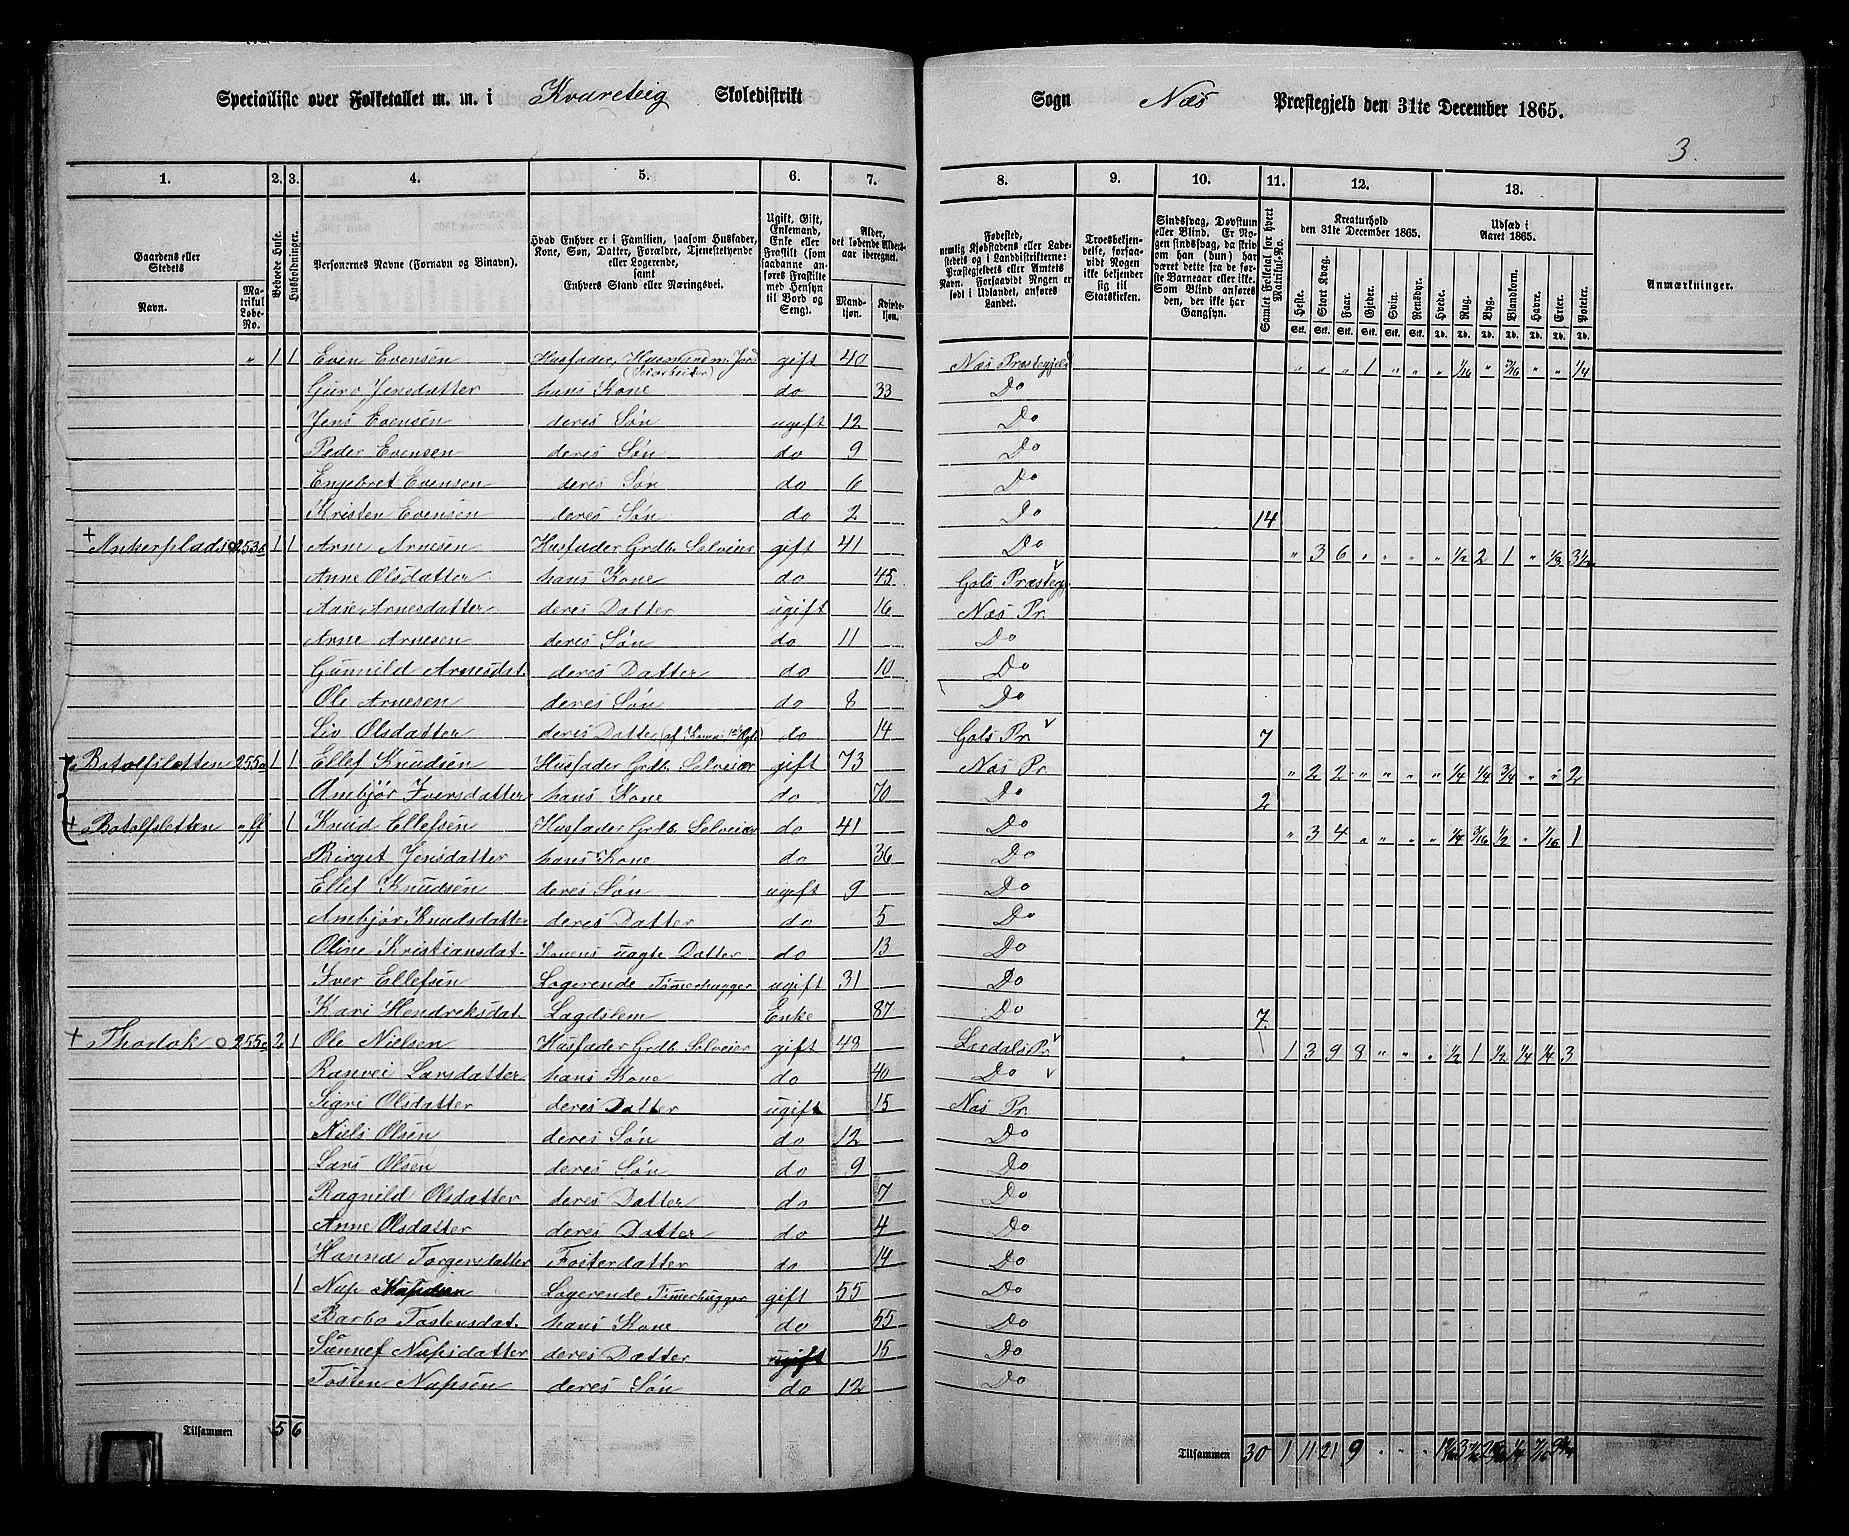 Specialliste over Folketallet m. m. i Kvareteig Skoledistrikt Sogn Næs Præstegjeld den 31te December 1865.
3.
1. 2. 3. 4. 5. 6. 7. 8. 9. 10. 11. 12. 13.
Gaardens eller Stedets
Navn.
Matrikul Løbe-No.
Beboede Huse.
Husholdninger.
Personernes Navne (Fornavn og Binavn).
Hvad Enhver er i Familien, saasom Husfader, Kone, Søn, Datter, Forældre, Tjenestetyende eller Logerende, samt Enhvers Stand eller Næringsvei.
Ugift, Gift, Enkemand, Enke eller Fraskilt (som saadanne anføres Fraskilte med Hensyn til Bord og Seng).
Alder, det løbende Alders-aar iberegnet.
Mand-kjøn. Kvinde-kjøn.
Fødested, nemlig Kjøbstadens eller Ladestedets og i Landdistrikterne: Præstegjeldets eller Amtets Navn. Forsaavidt Nogen er født i Udlandet, anføres Landet.
Troesbekjendelse, forsaavidt Nogen ikke bekjender sig til Statskirken.
Sindssvag, Døvstum eller Blind. Er Nogen sindssvag, da skriv om han (hun) har været dette fra de første Barneaar eller ikke. Som Blind anføres den, der ikke har Gangsyn.
Samlet Folketal for hvert Matrikul-No.
Kreaturhold den 31te December 1865.
Heste. Stort Kvæg. Faar. Gjeder. Svin. Rensdyr.
Stk. Stk. Stk. Stk. Stk. Stk.
Udsæd i Aaret 1865.
Hvede. Rug. Byg. Blandkorn. Havre. Erter. Poteter.
Td. Td. Td. Td. Td. Td. Td.
Anmærkninger.
" 1 1 Even Evensen Husfader, Husmand m. Jord gift 40 Næs Præstegjeld " " " 1 " " " 1/16 " 3/16 " " 1/4
(Veiarbeider)
Guro Jensdatter hans Kone do 33 Do
Jens Evensen deres Søn ugift 12 Do
Peder Evensen deres Søn do 9 Do
Engebret Evensen deres Søn do 6 Do
Kristen Evensen deres Søn do 2 Do 14
+ Ankerplads 253 1 1 Arne Arnesen Husfader Grdb. Selveier gift 41 Do " 3 6 " " " " 1/2 2 1 " 1/3 3 1/2
Anne Olsdatter hans Kone do 45 Gols Præstegj.
Aase Arnesdatter deres Datter ugift 16 Næs Pr.
Arne Arnesen deres Søn do 11 Do
Gunnild Arnesdat. deres Datter do 10 Do
Ole Arnesen deres Søn do 8 Do
Liv Olsdatter deres Datter do 14 Gols Pr. 7
Botolfsletten 255a 1 1 Ellef Knudsen Husfader Grdb. Selveier gift 73 Næs Pr. " 2 2 " " " " 1/4 1/4 3/4 " " 2
Anebjør Iversdatter hans Kone do 70 Do 2
+ Botolfsletten " ff 1 Knud Ellefsen Husfader Grdb. Selveier do 41 Do " 3 4 " " " " 1/4 3/16 1/2 " 1/16 1
Birget Jensdatter hans Kone do 36 Do
Ellef Knudsen deres Søn ugift 9 Do
Anebjør Knudsdatter deres Datter do 5 Do
Oline Kristiansdat. Konens uægte Datter do 13 Do
Iver Ellefsen Logerende Tømerhugger ugift 31 Do
Kari Hendreksdat. Lægdslem Enke 87 Do 7
+ Thodok 255 2 1 Ole Nielsen Husfader Grdb. Selveier gift 43 Lærdals Pr. 1 3 9 8 " " " 1/2 1 1/2 1/4 1/4 3
Ranvei Larsdatter hans Kone do 40 Do
Sigri Olsdatter deres Datter ugift 15 Næs Pr.
Niels Olsen deres Søn do 12 Do
Lars Olsen deres Søn do 9 Do
Ragnild Olsdatter deres Datter do 7 Do
Anne Olsdatter deres Datter do 4 Do
Torgersdatter Fosterdatter do 14 Do
1 Logerende Tømerhugger gift 55 Do
Barbo Tostensdat. hans Kone do 55 Do
deres Datter ugift 15 Do
Tosten deres Søn do 12 Do
Tilsammen 5 6 Tilsammen 30 1 11 21 9 " " "